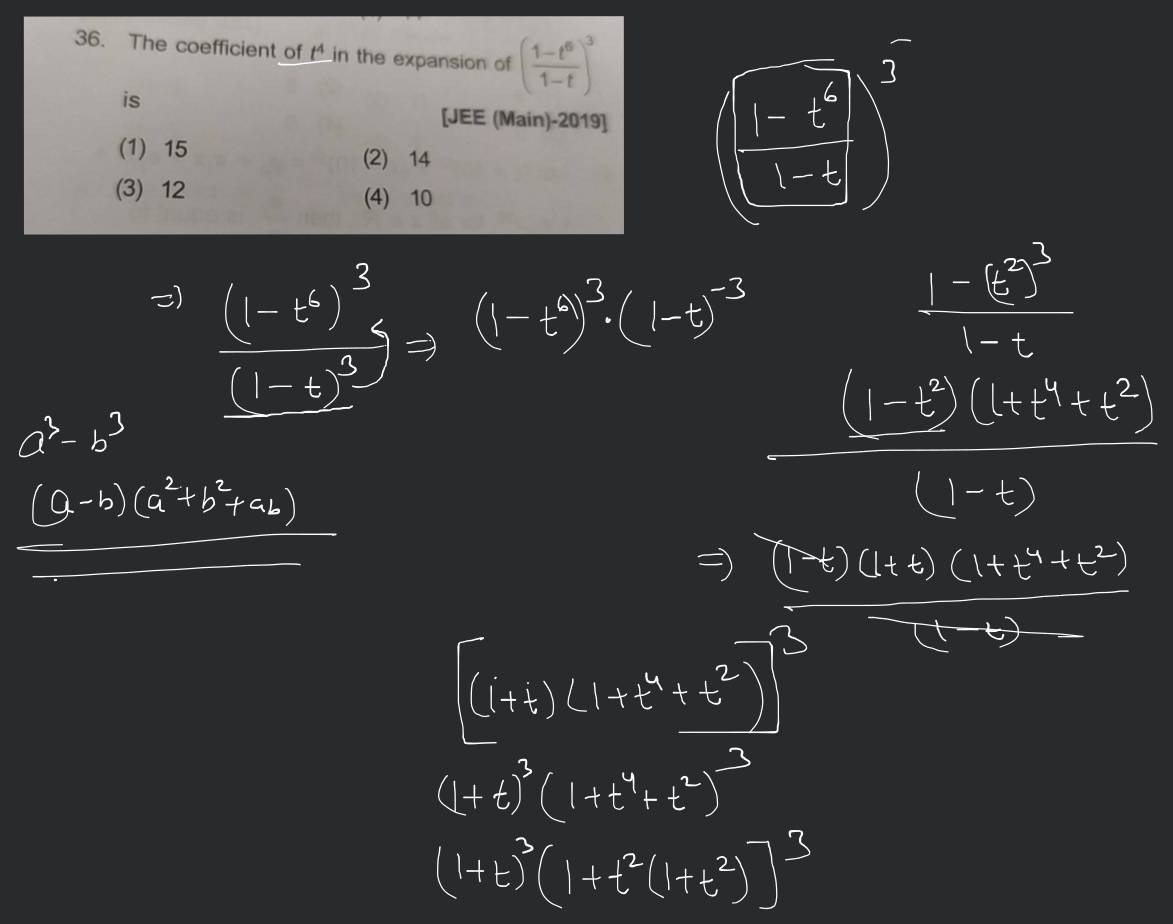 36. The coefficient of t⁴ in the expansion of ((1–t⁶)/(1–t))³
is
[JEE (Main)-2019]
(1) 15
(2) 14
(3) 12
(4) 10
((1 - t⁶)/(1 - t))³
=> (1 - t⁶)³/(1 - t)³ => (1 - t⁶)³ · (1 - t)⁻³
a³ - b³
(a - b)(a² + b² + ab)
(1 - (t²)³)/(1 - t)
(1 - t²)(1 + t⁴ + t²)/(1 - t)
=> (1 - t)(1 + t)(1 + t⁴ + t²)/(1 - t)
[(1 + t)(1 + t⁴ + t²)]³
(1 + t)³(1 + t⁴ + t²)³
(1 + t)³(1 + t²(1 + t²)]³